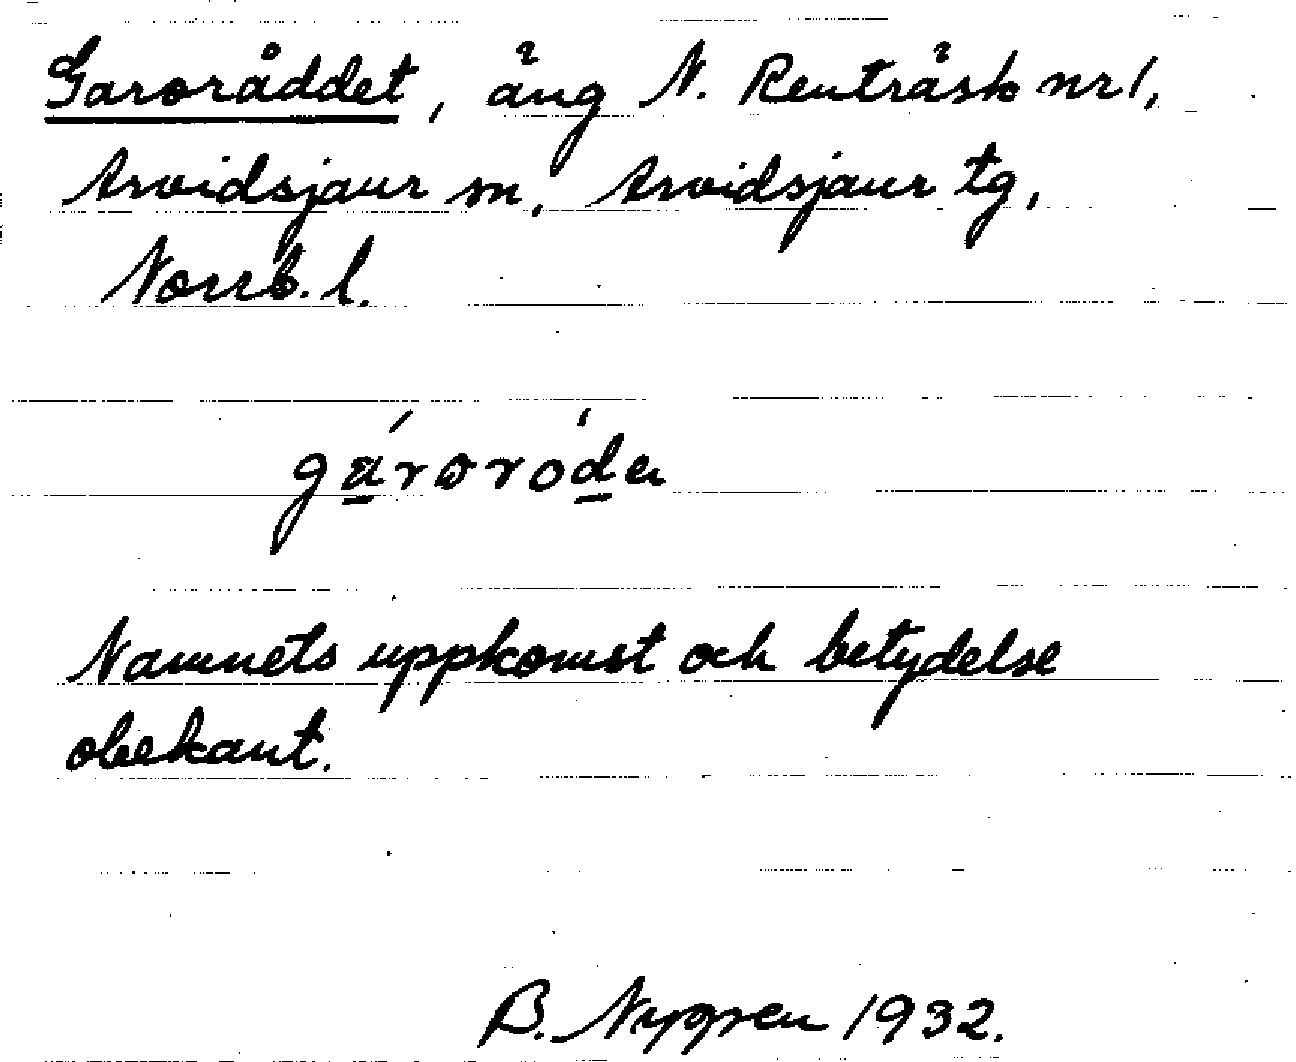 Garoråddet, äng N. Renträsk nr 1,
Arvidsjaur sn, Arvidsjaur tg,
Norrb. l.
gároródɛn
Namnets uppkomst och betydelse
obekant.
B. Nygren 1932.